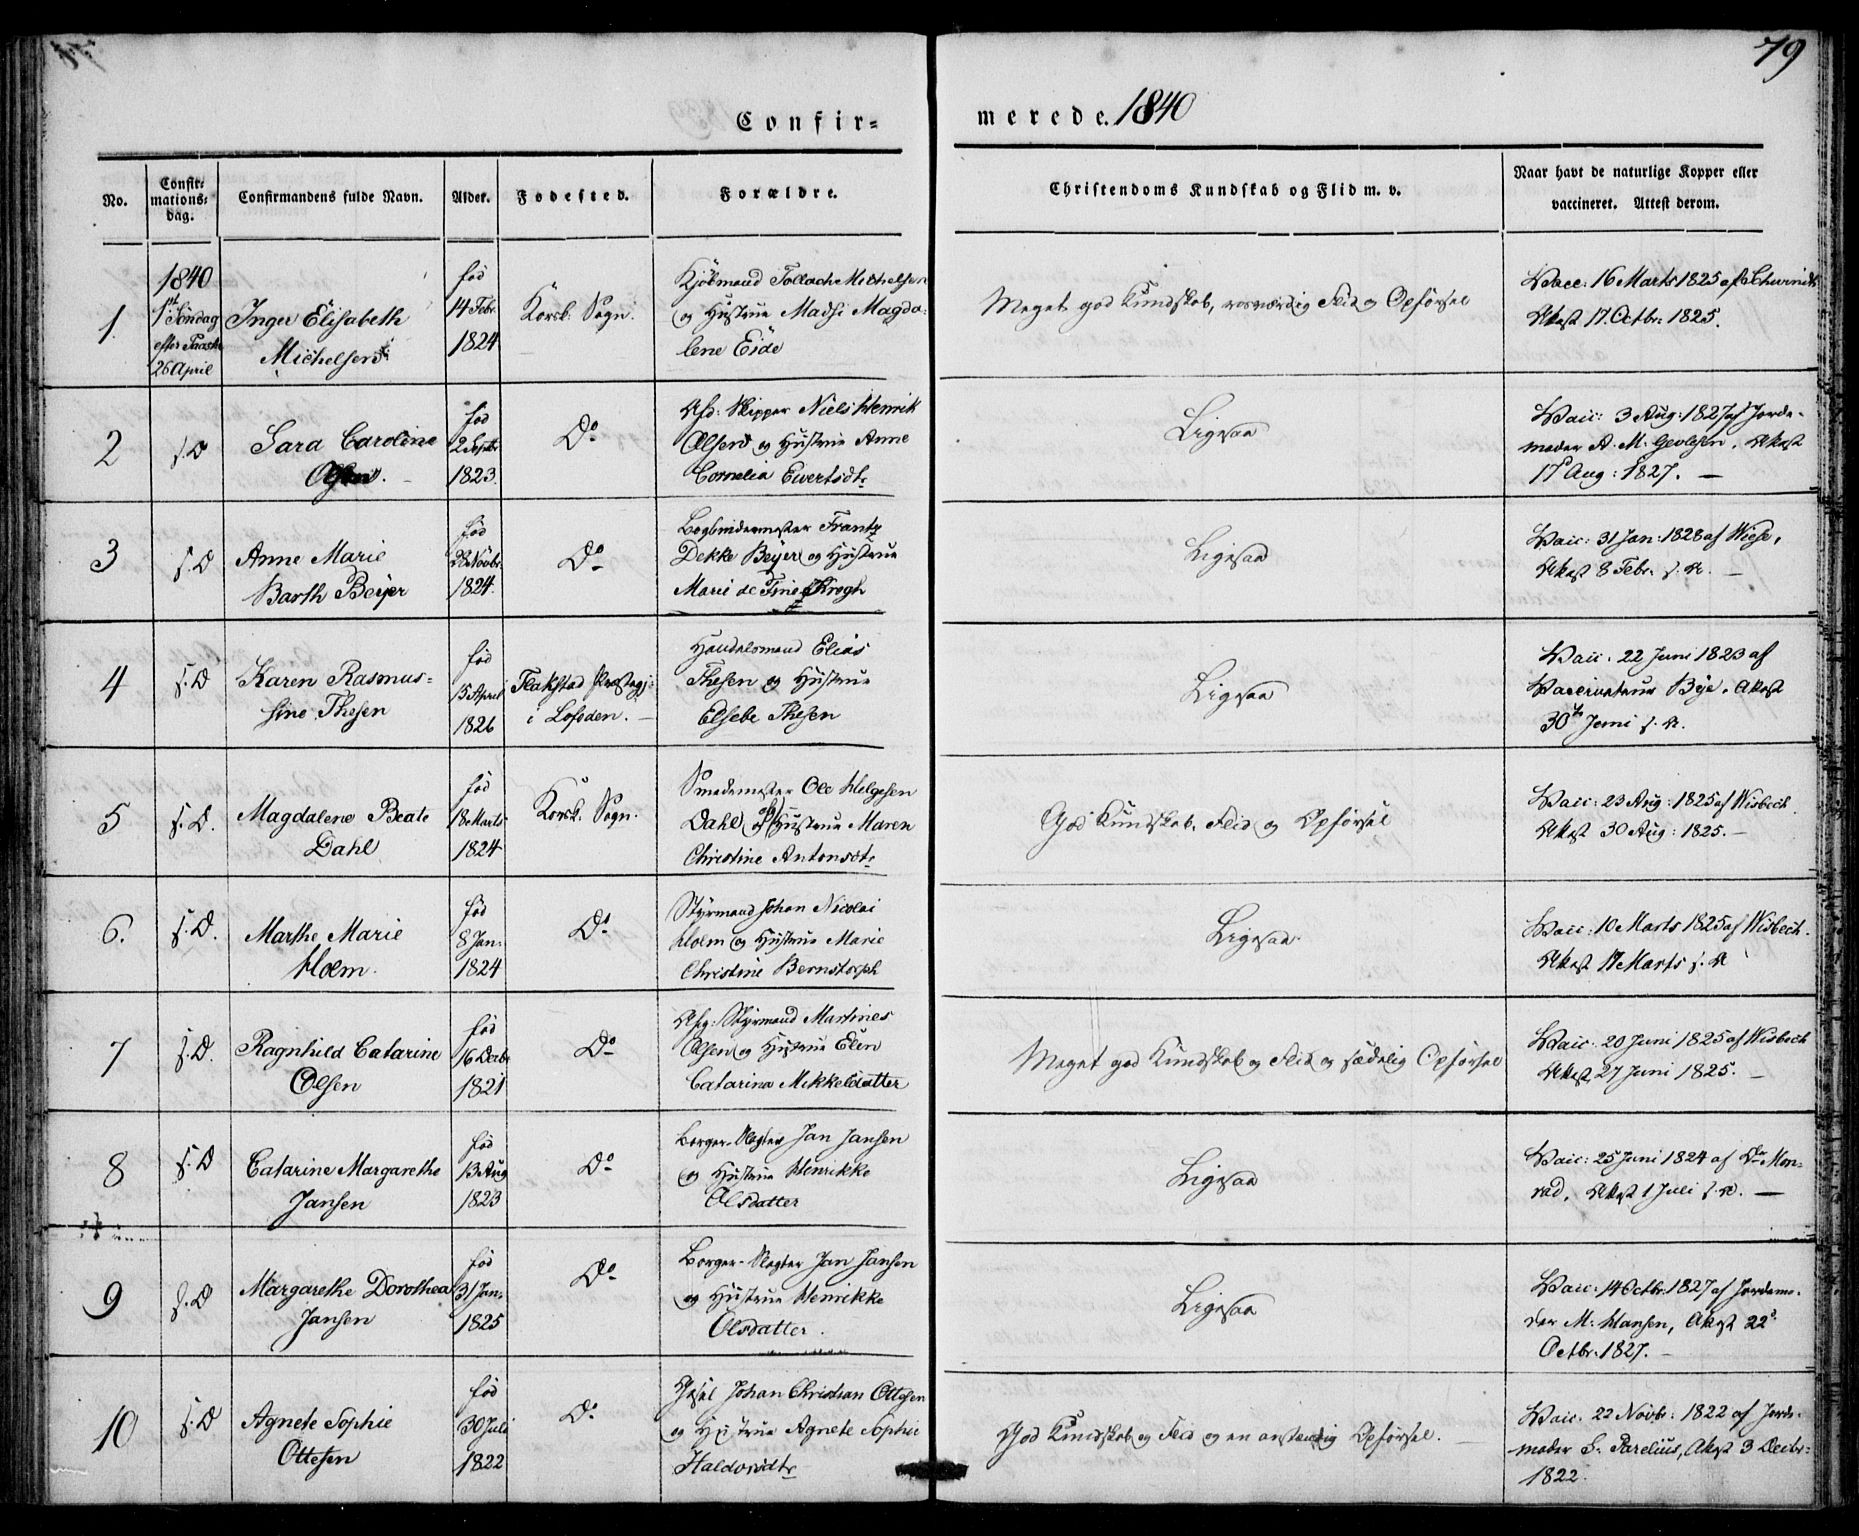 79
Confir=
merede. 1840
No.
Confir=
mations=
dag.
Confirmandens fulde Navn.
Alder.
Fødested.
Forældre.
Christendoms Kundskab og Flid m. v.
Naar havt de naturlige Kopper eller
vaccineret. Attest derom.
1.
1840
1ste Søndag
efter Paaske
26 April
Inger Elisabeth
Michelsen
fød
14 Febr.
1824
Korsk. Sogn.
Kjøbmand Tollach Michelsen
og Hustrue Madsi Magda=
lene Eide
Meget god Kundskab, rosværdig Flid og Opførsel
Vacc: 16 Marts 1825 af
Attest 17 Octbr: 1825.
2
s. D
Sara Caroline
Olsen.
fød
2 Septbr
1823.
Do
Afd: Skipper Niels Henrik
Olsen og Hustrue Anne
Cornelia Evertsdtr
Ligesaa
Vacc: 3 Aug: 1827 af Jorde-
moder A. M. Gevlesen, Attest
17 Aug: 1827. —
3
s. D
Anne Marie
Barth Beijer
fød
22 Novbr.
1824.
Do
Bogbindermester Frantz
Dekke Beijer og Hustrue
Marie de Fine Krogh
Ligesaa
Vacc: 31 Jan: 1828 af Wiese,
Attest 8 Febr. s. A. —
4
s. D
Karen Rasmus=
sine Thesen
fød
15 April
1826
Flakstad Præstegj:
i Lofoden. —
Handelsmand Elias
Thesen og Hustrue
Elsebe Thesen
Ligesaa
Vacc. 22 Juni 1823 af
Vaccinateur Bye. Attest
30te Juni s. A.
5
s. D.
Magdalene Beate
Dahl
fød
18 Marts
1824
Korsk. Sogn.
Smedemester Ole Helgesen
Dahl og Hustrue Maren
Christine Antonsdtr
God Kundskab, Flid og Opførsel
Vacc: 23 Aug: 1825 af Wisbech
Attest 30 Aug: 1825. —
6.
s. D.
Marthe Marie
Holm.
fød
8 Jan:
1824
Do
Styrmand Johan Nicolai
Holm og Hustrue Marie
Christine Bernstorph
Ligesaa
Vacc: 10 Marts 1825 af Wisbech.
Attest 17 Marts s. A
7
s. D.
Ragnhild Catarine
Olsen
fød
16 Decbr
1821
Do
Afg: Styrmand Martines
Olsen og Hustrue Elen
Catarina Mikkelsdatter
Meget god Kundskab og Flid og sædelig Opførsel
Vacc. 20 Juni 1825 af Wisbech
Attest 27 Juni 1825. —
8
s. D
Catarine Margarethe
Jansen
fød
13 Aug
1823
Do
Borger-Slagter Jan Jansen
og Hustrue Henrikke
Olsdatter
Ligesaa
Vacc: 25 Juni 1824 af Dr Mon=
rad, Attest 1 Juli s. A. —
9
s. D
Margarethe Dorothea
Jansen
fød
31 Jan:
1825
Do
Borger-Slagter Jan Jansen
og Hustrue Henrikke
Olsdatter.
Ligesaa
Vacc: 14 Octbr: 1827 af Jordemo-
der M. Hansen, Attest 22de
Octbr: 1827. —
10
s. D
Agnete Sophie
Ottesen
fød
30 Juli
1822
Do
Johan Christian Ottesen
og Hustrue Agnete Sophie
Haldorsdtr
God Kundskab og Flid og en anstændig Opførsel. —
Vacc. 22 Novbr: 1822 af Jorde-
moder S. Parelius, Attest 3 Decbr:
1822.